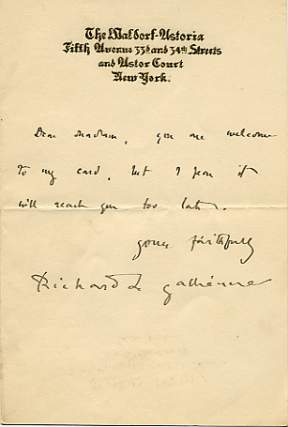 The Waldorf-Astoria
Fifth Avenue 33d and 34th Streets
and Astor Court
New York.
Dear Madam, you are welcome
to my card, but I fear it
will reach you too late.
yours faithfully
Richard Le Gallienne